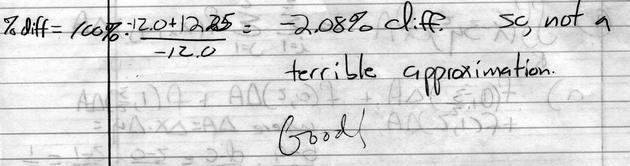 % diff = 100% · -12.0+12.25 / -12.0 = -2.08% diff. so, not a
terrible approximation.
Good!